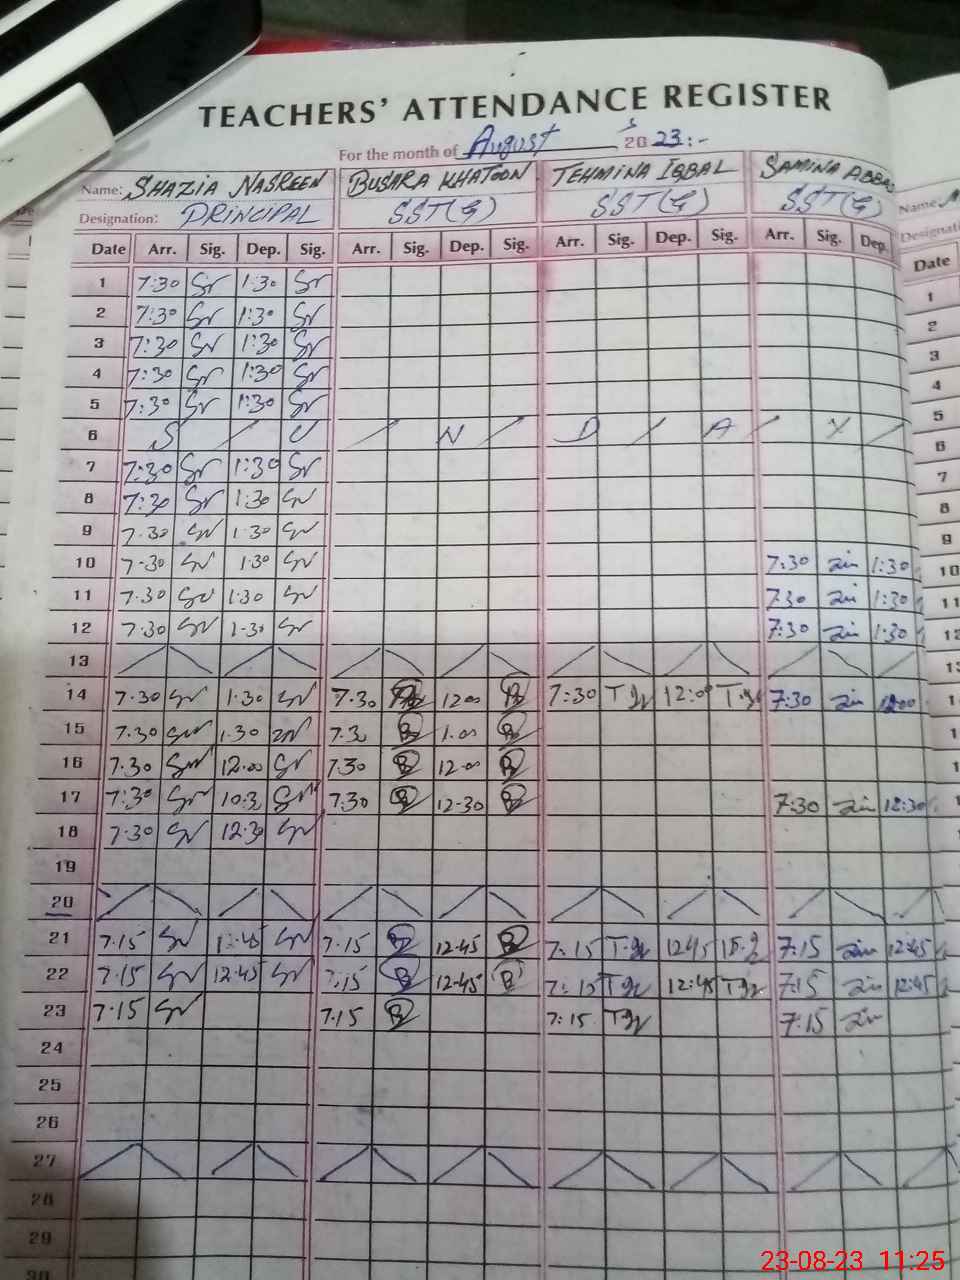 TEACHERS' ATTENDANCE REGISTER
For the month of August 2023:-
Name: SHAZIA NASREEN BUSARA KHATOON TEHMINA IQBAL SAMINA ABBAS Name:
Designation: PRINCIPAL SST(G) SST(G) SST(G) Designati
Date Arr. Sig. Dep. Sig. Arr. Sig. Dep. Sig. Arr. Sig. Dep. Sig. Arr. Sig. Dep. Date
1 7:30 Sr 1:30 Sr 1
2 7:30 Sr 1:30 Sr 2
3 7:30 Sr 1:30 Sr 3
4 7:30 Sr 1:30 Sr 4
5 7:30 Sr 1:30 Sr 5
6 S / U / N / D / A / Y / 6
7 7:30 Sr 1:30 Sr 7
8 7:30 Sr 1:30 Sr 8
9 7.30 Sr 1.30 Sr 9
10 7.30 Sr 1.30 Sr 7:30 1:30 10
11 7.30 Sr 1.30 Sr 7.30 1:30 11
12 7.30 Sr 1.30 Sr 7:30 1.30 12
13
14 7.30 Sr 1.30 Sr 7.30 12.00 B 7:30 12:00 7:30 12.00
15 7.30 Sr 1.30 7.30 B 1.00 B
16 7.30 Sr 12.00 Sr 7.30 B 12.00 B
17 7:30 Sr 10.3 Sr 7.30 B 12.30 B 7:30 12:30
18 7.30 Sr 12.30 Sr
19
20
21 7.15 Sr Sr 7.15 B 12.45 B 7:15 12.45 7:15 12:45
22 7.15 Sr 12.45 Sr 7.15 B 12.45 B 7:15 12:45 7:15 12:45
23 7.15 Sr 7.15 B 7:15 7:15
24
25
26
27
28
29
30
23-08-23 11:25